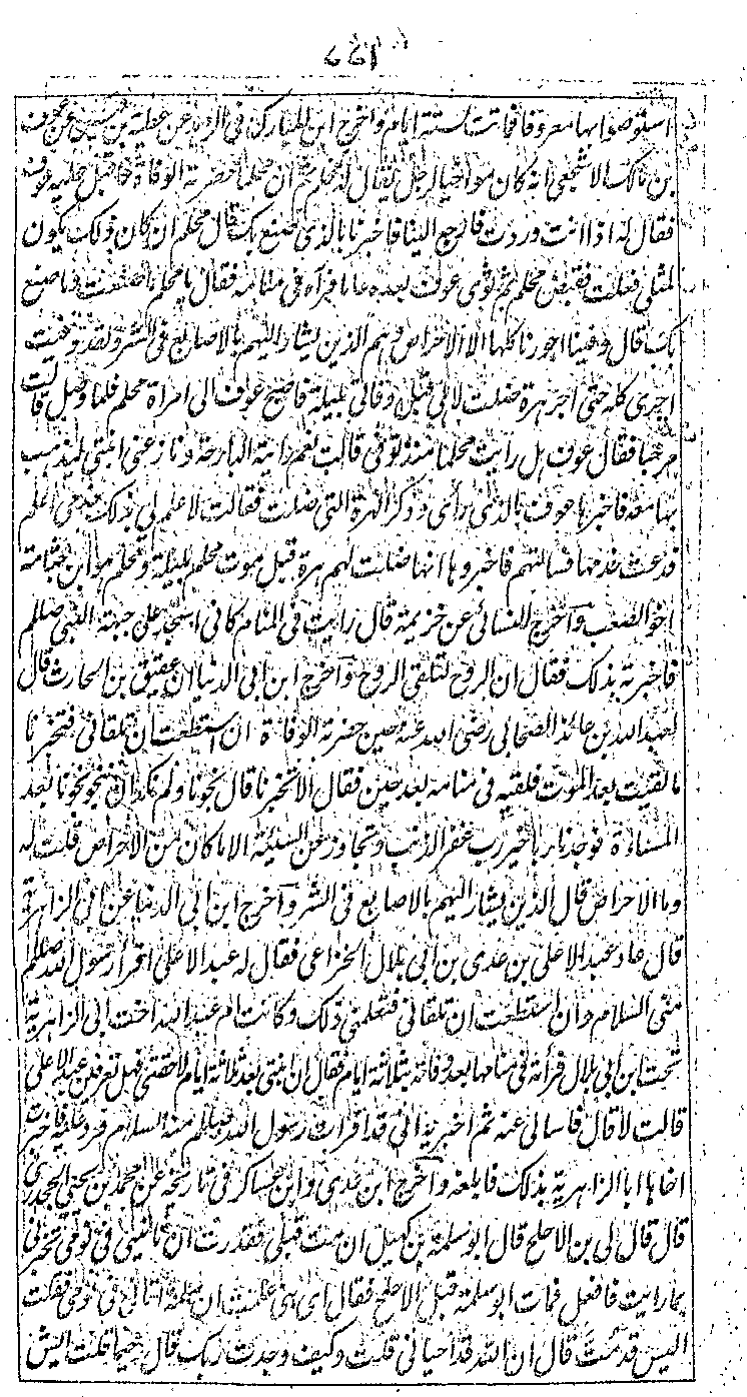 استوصوا بها معروفا فماتت لستة ايام واخرج ابن المبارك في الزهد عن عطية بن قيس عن عوف
بن مالك الاشجعي انه كان مواخيا لرجل يقال له محلم ثم ان محلما حضرته الوفاة فاقبل عليه عوف
فقال له اذا انت وردت فارجع الينا فاخبرنا بالذي صنع بك قال محلم ان كان ذلك يكون
لمثلي فعلت فقبض محلم ثم ثوى عوف بعده عاما فرآه في منامه فقال يا محلم ما صنعت وما صنع
بك قال وفينا اجورنا كلها الا الاحراض وهم الذين يشار اليهم بالاصابع في الشر ولقد وفيت
اجرى كله حتى اجر هرة ضلت لاهلي قبل وفاتي بليلة فاصبح عوف الى امراة محلم فلما دخل قالت
مرحبا فقال عوف هل رايت محلما منذ توفي قالت نعم رايته البارحة ونازعني ابنتي ليذهب
بها معه فاخبرها عوف بالذي رأى وذكر الهرة التي ضلت فقالت لا علم لي بذلك خدمي اعلم
فدعت خدمها فسالتهم فاخبروها انها ضلت لهم هرة قبل موت محلم بليلة ومحلم هو ابن جثامة
اخو الصعب واخرج النسائي عن خزيمة قال رايت في المنام كاني اسجد على جبهة النبي صلعم
فاخبرته بذلك فقال ان الروح لتلقى الروح واخرج ابن ابي الدنيا ان عفيق بن الحارث قال
لعبد الله بن عائذ الصحابي رضي الله عنه حين حضرته الوفاة ان استطعت ان تلقاني فتخبرنا
ما لقيت بعد الموت فلقيه في منامه بعد حين فقال الا تخبرنا قال نجونا ولم نكد ان ننجو نجونا بعد
المشاؤة فوجدنا ربا خير رب غفر الذنب وتجاوز عن السيئة الا ما كان من الاحراض قلت له
وما الاحراض قال الذين يشار اليهم بالاصابع في الشر واخرج ابن ابي الدنيا عن ابي الزاهرية
قال عاد عبد الاعلى بن عدي بن ابي بلال الخزاعي فقال له عبد الاعلى اقرأ رسول الله صلعم
مني السلام وان استطعت ان تلقاني فتعلمني ذلك وكانت ام عبد الله اخت ابي الزاهرية
تحت ابن ابي بلال فرأته في منامها بعد وفاته بثلاثة ايام فقال ان ابنتي بعد ثلاثة ايام لاحقتي فهل تعرفين عبد الاعلى
قالت لا قال فاسالي عنه ثم اخبريه اني قد اقرات رسول الله صلعم منه السلام فرد عليه فاخبرت
اخاها ابا الزاهرية بذلك فابلغه واخرج ابن عدي وابن عساكر في تاريخه عن محمد بن يحيى الجحدري
قال قال لي بن الاجلح قال ابو سلمة بن كهيل ان مت قبلي فقدرت ان تاتيني في نومي فتخبرني
بما رايت فافعل فمات ابو سلمة قبل الاجلح فقال اي بني علمت ان سلمة اتاني في نومي فقلت
اليس قد مت قال ان الله قد احياني قلت وكيف وجدت ربك قال رحيما قلت ايش